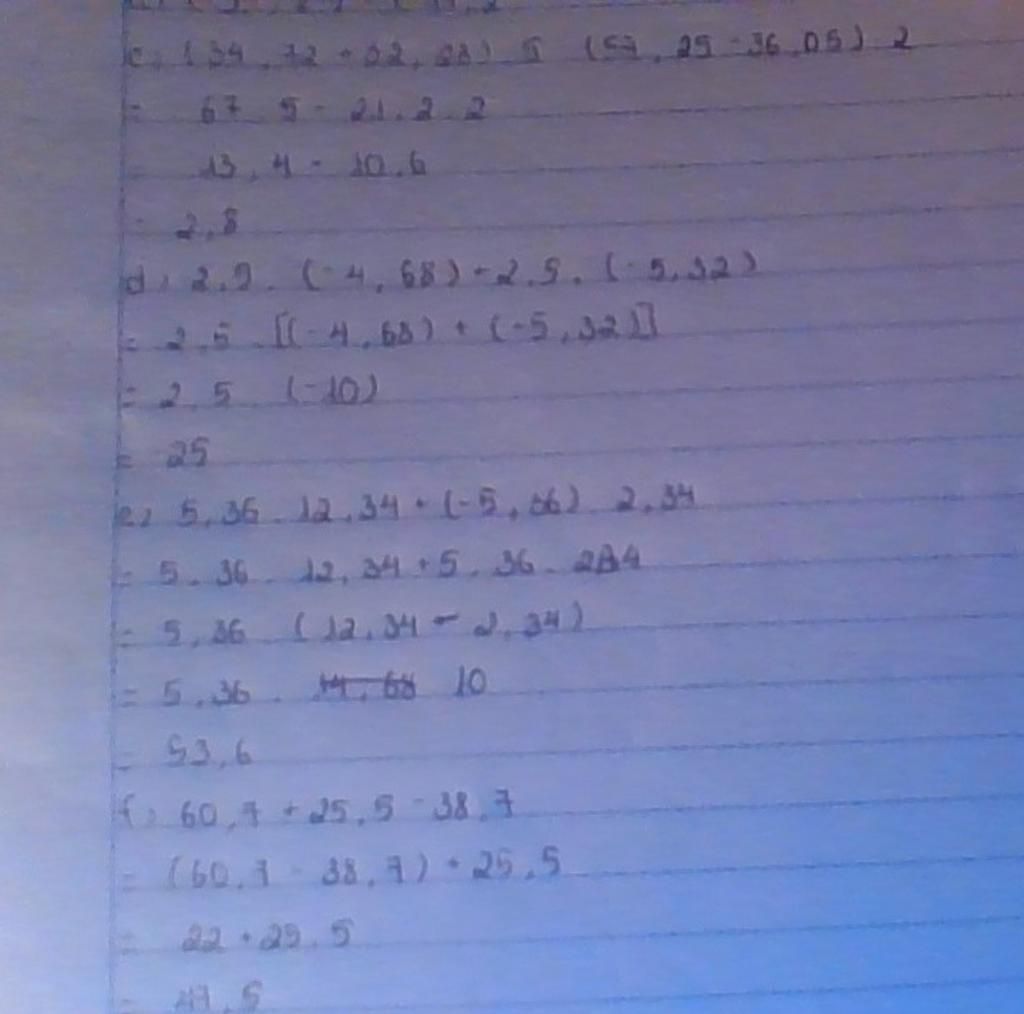 c) (34,72 + 32,28) : 5 - (57,25 - 36,05) : 2
= 67 : 5 - 21,2 : 2
= 13,4 - 10,6
= 2,8
d) 2,5 . (-4,68) + 2,5 . (-5,32)
= 2,5 . [(-4,68) + (-5,32)]
= 2,5 (-10)
= 25
e) 5,36 . 12,34 + (-5,36) . 2,34
= 5,36 . 12,34 + 5,36 . 2,34
= 5,36 (12,34 - 2,34)
= 5,36 . 10
= 53,6
f) 60,7 + 25,5 - 38,7
= (60,7 - 38,7) + 25,5
= 22 + 25,5
= 47,5